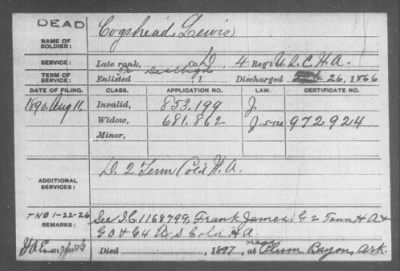 DEAD
NAME OF SOLDIER: Cogshead, Lewis
SERVICE: Late rank, Co. D, 4 Reg't U.S.C.H.A.
TERM OF SERVICE: Enlisted , 1 Discharged 26, 1866
DATE OF FILING. CLASS. APPLICATION NO. LAW. CERTIFICATE NO.
1890 Aug 11 Invalid, 853,199 J
Widow, 681,862 972924
Minor,
ADDITIONAL SERVICES: D. 2 Tenn Col'd H.A.
REMARKS: TNO 1-22-26 See I.C. 1168799, Frank James, G 2 Tenn H A &
G 4 U S Cold H A
Died , 1897, near Plum Bayou, Ark.